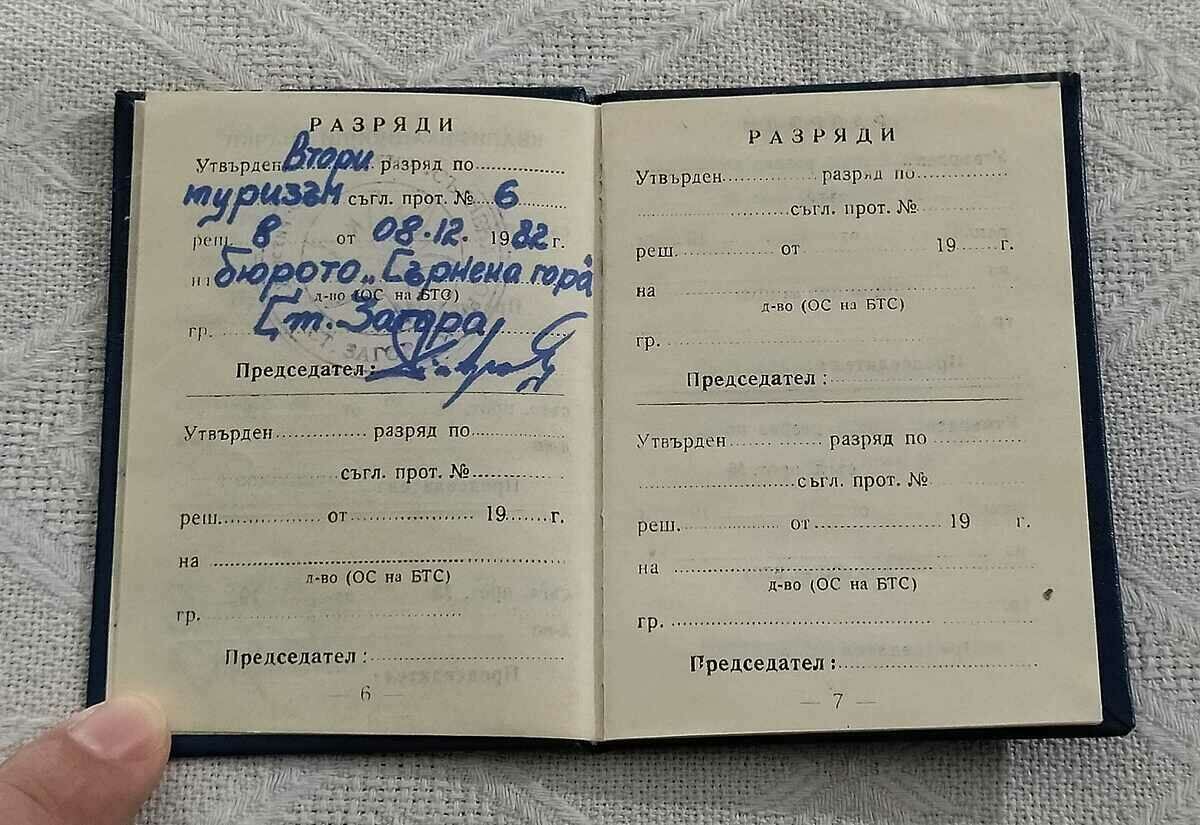 РАЗРЯДИ
Утвърден Втори разряд по............
туризъм съгл. прот. №...6........
реш. 8 от 08.12. 1982 г.
на бюрото „Сърнена гора"
д-во (ОС на БТС)
гр. Ст. Загора
Председател:
Утвърден.............. разряд по..............
съгл. прот. №..............
реш............... от .................. 19.......г.
на ..............................
д-во (ОС на БТС)
гр...............................
Председател:..............................
— 6 —
РАЗРЯДИ
Утвърден.............. разряд по..............
..............съгл. прот. №
реш............... от .................. 19 г.
на ..............................
д-во (ОС на БТС)
гр...............................
Председател:..............................
Утвърден.............. разряд по ..............
..............съгл. прот. №
реш............... от .................. 19 г.
на ..............................
д-во (ОС на БТС)
гр. ..............................
Председател:..............................
— 7 —